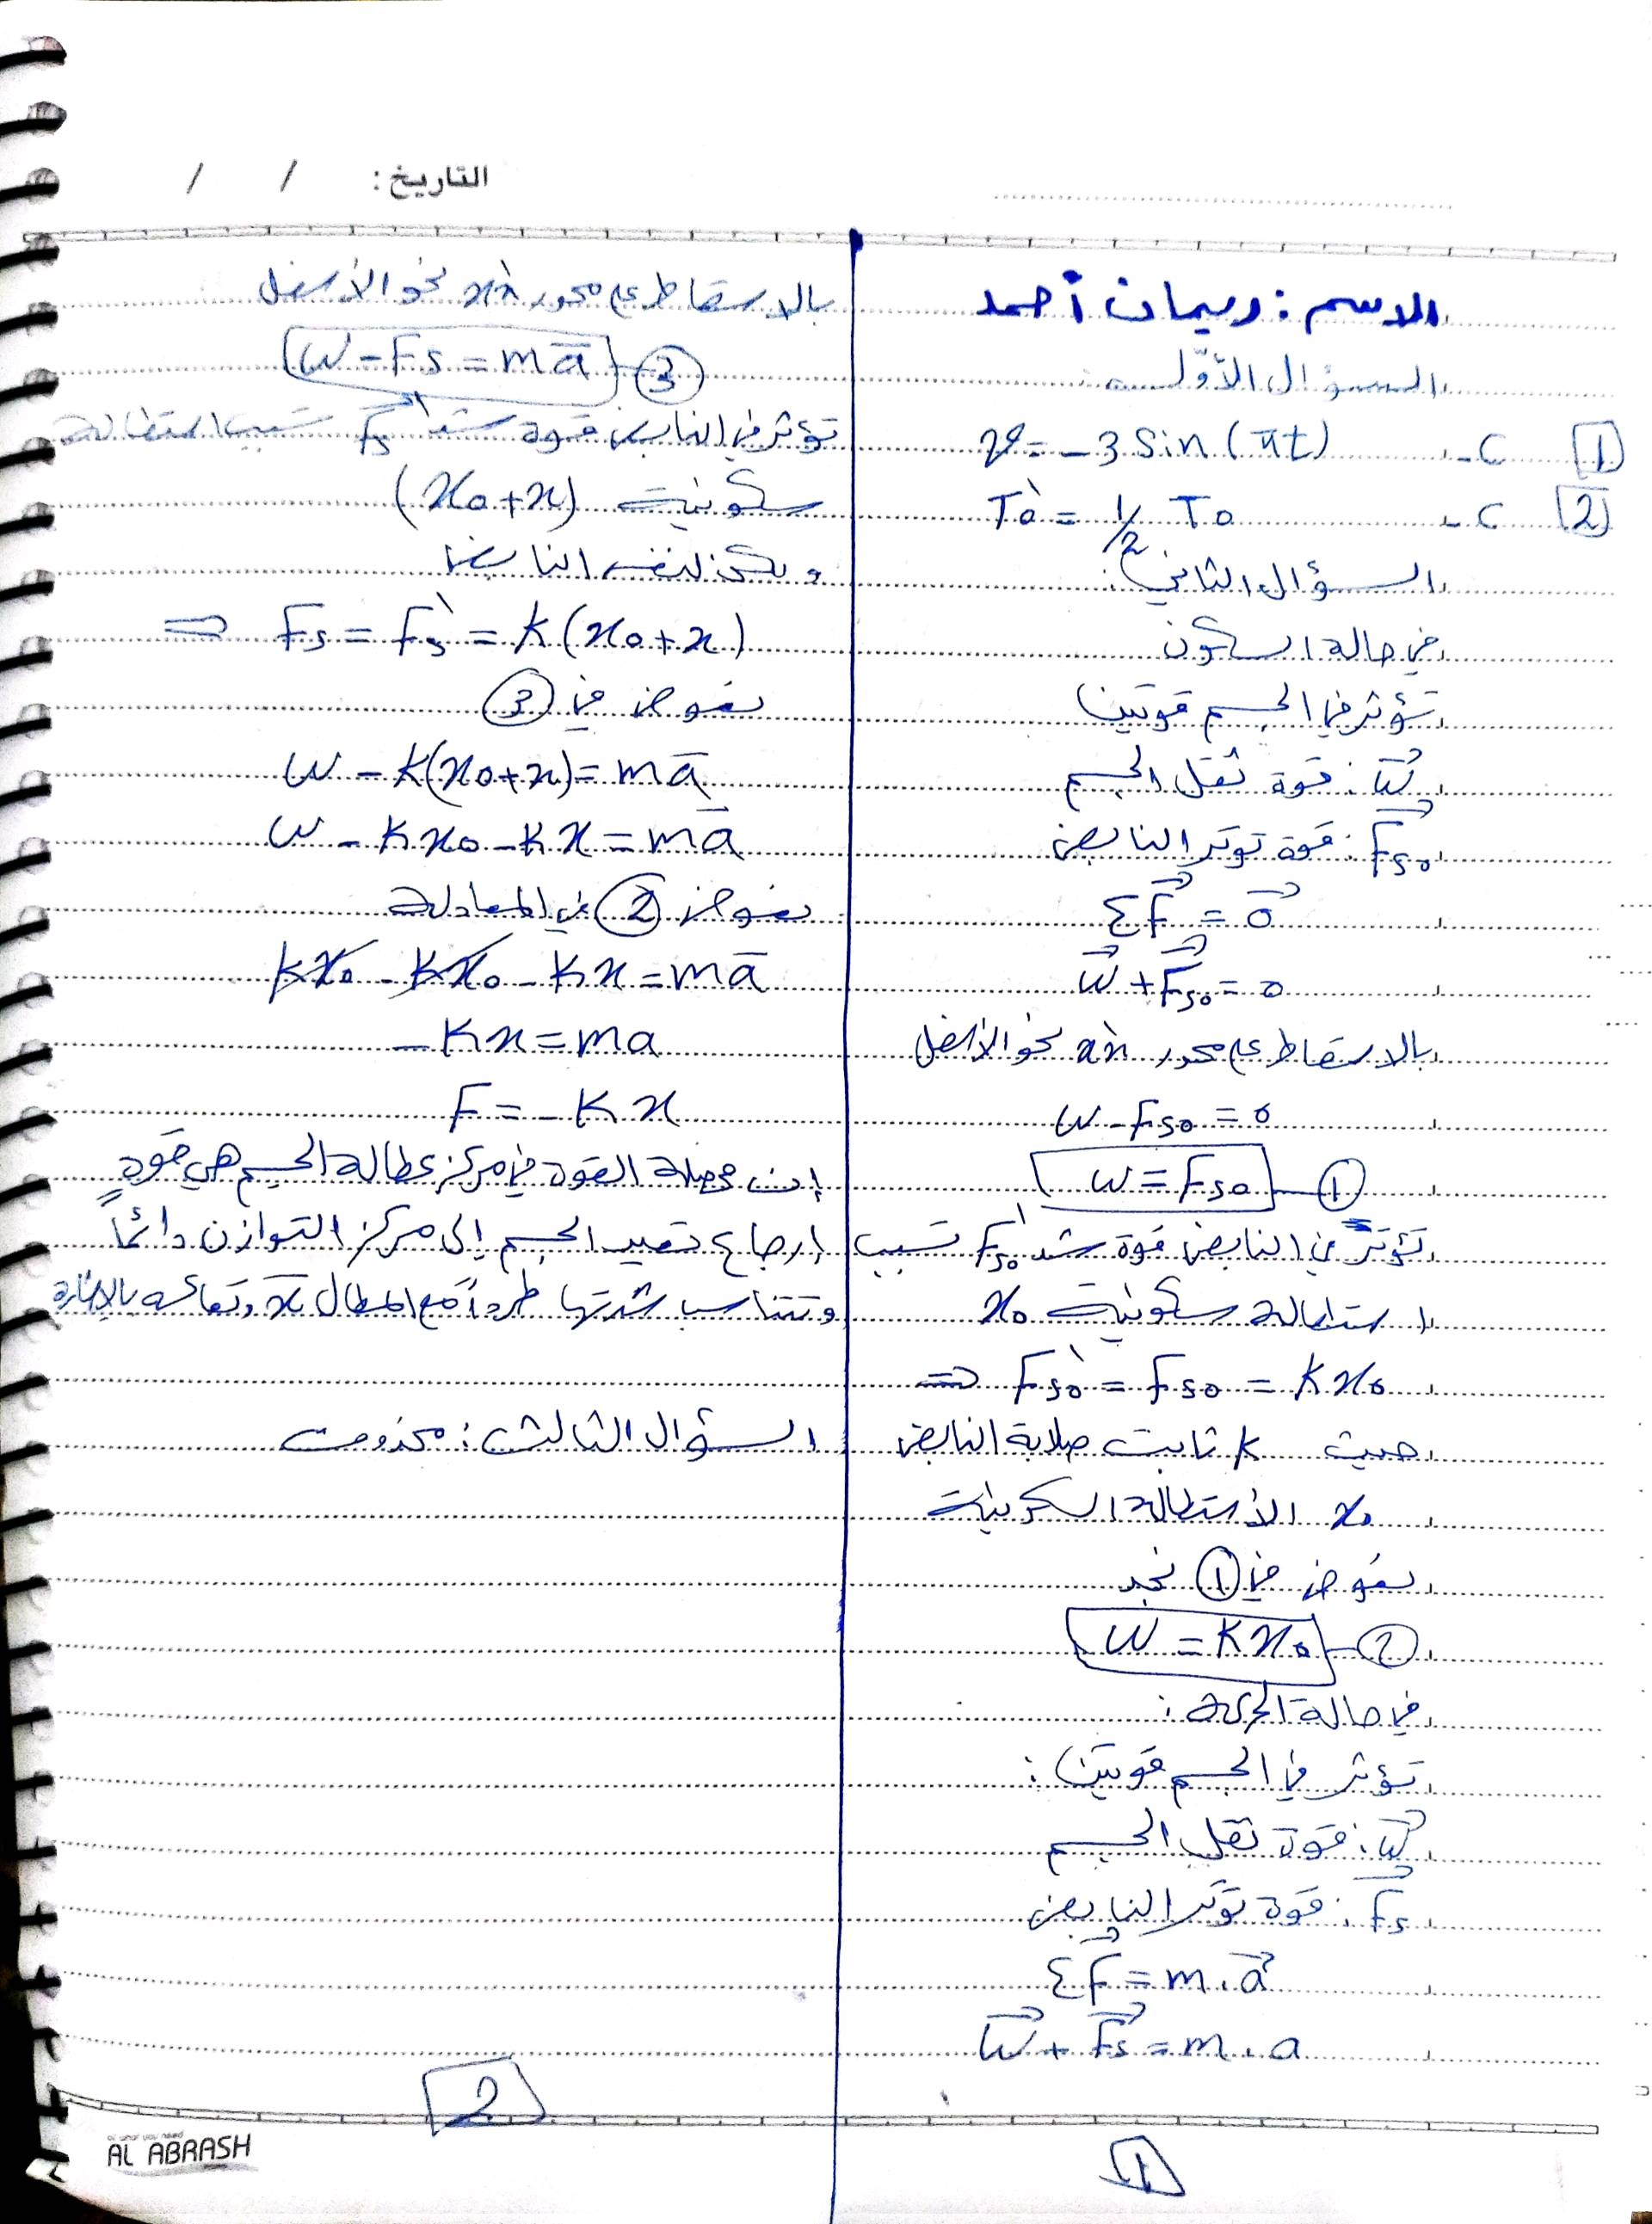 التاريخ: / /
الاسم: ريمان أحمد
السؤال الأوّل:
1 C- v = -3 sin(πt)
2 C- T0' = 1/2 T0
السؤال الثاني:
في حالة السكون
تؤثر في الجسم قوتين
W: قوة ثقل الجسم
Fs0: قوة توتر النابض
ΣF = 0
W + Fs0 = 0
بالاسقاط على محور xx' نحو الأسفل
W - Fs0 = 0
W = Fs0 ①
تؤثر في النابض قوة شد Fs0' تسبب
استطالة سكونية x0
Fs0' = Fs0 = k x0 ⇒
حيث k ثابت صلابة النابض
x0 الاستطالة السكونية
نعوض في ① نجد
W = k x0 ②
في حالة الحركة:
تؤثر في الجسم قوتين:
W: قوة ثقل الجسم
Fs: قوة توتر النابض
ΣF = m . a
W + Fs = m . a
1
بالاسقاط على محور xx' نحو الأسفل
W - Fs = ma ③
تؤثر في النابض قوة شد Fs' تسبب استطالة
سكونية (x0 + x)
Fs = Fs' = k(x0 + x) ⇒
نعوض في ③
W - k(x0 + x) = ma
W - kx0 - kx = ma
نعوض ② في المعادلة
kx0 - kx0 - kx = ma
-kx = ma
F = -kx
إن محصلة القوة في مركز عطالة الجسم هي قوة
إرجاع تعيد الجسم إلى مركز التوازن دائماً
وتتناسب شدتها طرداً مع المطال x وتعاكسه بالإشارة
السؤال الثالث: محذوف
2
all what you need
AL ABRASH